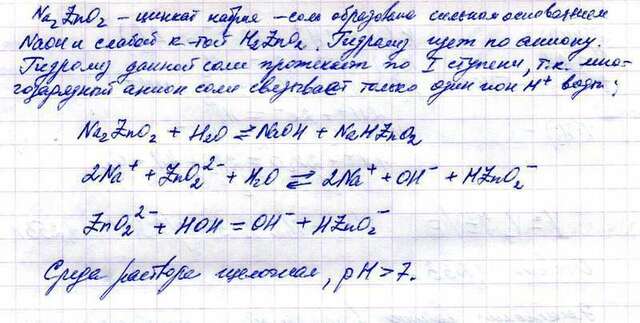 Na₂ZnO₂ – цинкат натрия – соль образована сильным основанием
NaOH и слабой к-той H₂ZnO₂. Гидролиз идет по аниону.
Гидролиз данной соли протекает по I ступени, т.к. мно-
гозарядный анион соли связывает только один ион H⁺ воды:
Na₂ZnO₂ + H₂O ⇄ NaOH + NaHZnO₂
2Na⁺ + ZnO₂²⁻ + H₂O ⇄ 2Na⁺ + OH⁻ + HZnO₂⁻
ZnO₂²⁻ + HOH = OH⁻ + HZnO₂⁻
Среда раствора щелочная, pH > 7.